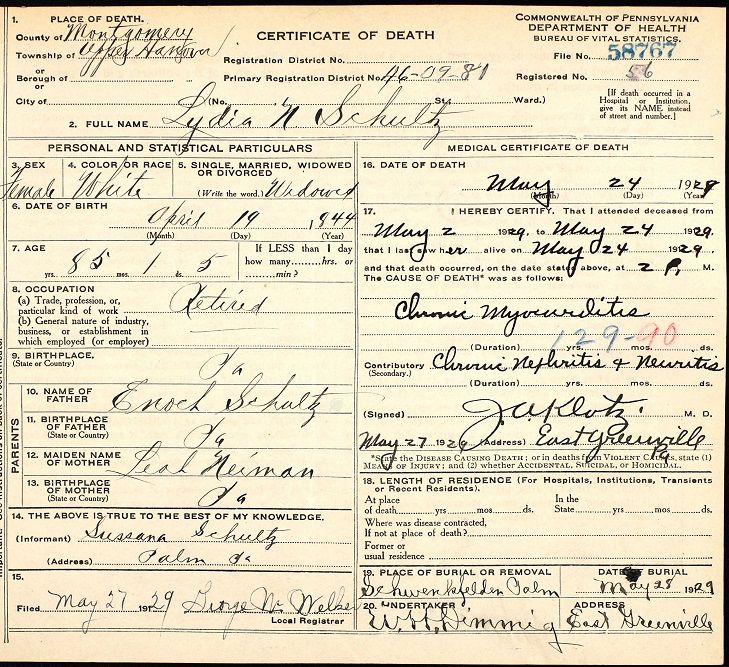 1. PLACE OF DEATH.
County of Montgomery
Township of Upper Hanover
or
Borough of
or
City of
CERTIFICATE OF DEATH
Registration District No.
Primary Registration District No. 46-09-81
(No. St. Ward.)
COMMONWEALTH OF PENNSYLVANIA
DEPARTMENT OF HEALTH
BUREAU OF VITAL STATISTICS.
File No. 58767
Registered No. 56
[If death occurred in a
Hospital or Institution,
give its NAME instead
of street and number.]
2. FULL NAME Lydia N Schultz
PERSONAL AND STATISTICAL PARTICULARS
3. SEX
Female
4. COLOR OR RACE
White
5. SINGLE, MARRIED, WIDOWED
OR DIVORCED
(Write the word.) Widowed
6. DATE OF BIRTH
April 19 1844
(Month) (Day) (Year)
7. AGE
85 yrs. 1 mos. 5 ds.
If LESS than 1 day
how many hrs. or
min.?
8. OCCUPATION
(a) Trade, profession, or,
particular kind of work Retired
(b) General nature of industry,
business, or establishment in
which employed (or employer)
9. BIRTHPLACE.
(State or Country) Pa
PARENTS
10. NAME OF
FATHER Enoch Schultz
11. BIRTHPLACE
OF FATHER
(State or Country) Pa
12. MAIDEN NAME
OF MOTHER Leah Neiman
13. BIRTHPLACE
OF MOTHER
(State or Country) Pa
14. THE ABOVE IS TRUE TO THE BEST OF MY KNOWLEDGE.
(Informant) Sussana Schultz
(Address) Palm Pa
15.
Filed May 27 1929 George M. Welker
Local Registrar
MEDICAL CERTIFICATE OF DEATH
16. DATE OF DEATH
May 24 1929
(Month) (Day) (Year)
17. I HEREBY CERTIFY. That I attended deceased from
May 2 1929, to May 24 1929,
that I last saw her alive on May 24 1929,
and that death occurred, on the date stated above, at 2 P. M.
The CAUSE OF DEATH* was as follows:
Chronic Myocarditis
129-90
(Duration) yrs. mos. ds.
Contributory Chronic Nephritis & Neuritis
(Secondary.)
(Duration) yrs. mos. ds.
(Signed) J. A. Klotz M. D.
May 27 1929 (Address) East Greenville Pa
*State the DISEASE CAUSING DEATH; or in deaths from VIOLENT CAUSES, state (1)
MEANS OF INJURY; and (2) whether ACCIDENTAL, SUICIDAL, OR HOMICIDAL.
18. LENGTH OF RESIDENCE (For Hospitals, Institutions, Transients
or Recent Residents).
At place
of death yrs. mos. ds.
In the
State yrs. mos. ds.
Where was disease contracted,
If not at place of death?
Former or
usual residence
19. PLACE OF BURIAL OR REMOVAL
Schwenkfelden Palm
DATE OF BURIAL
May 28 1929
20. UNDERTAKER
W. H. Dimmig
ADDRESS
East Greenville